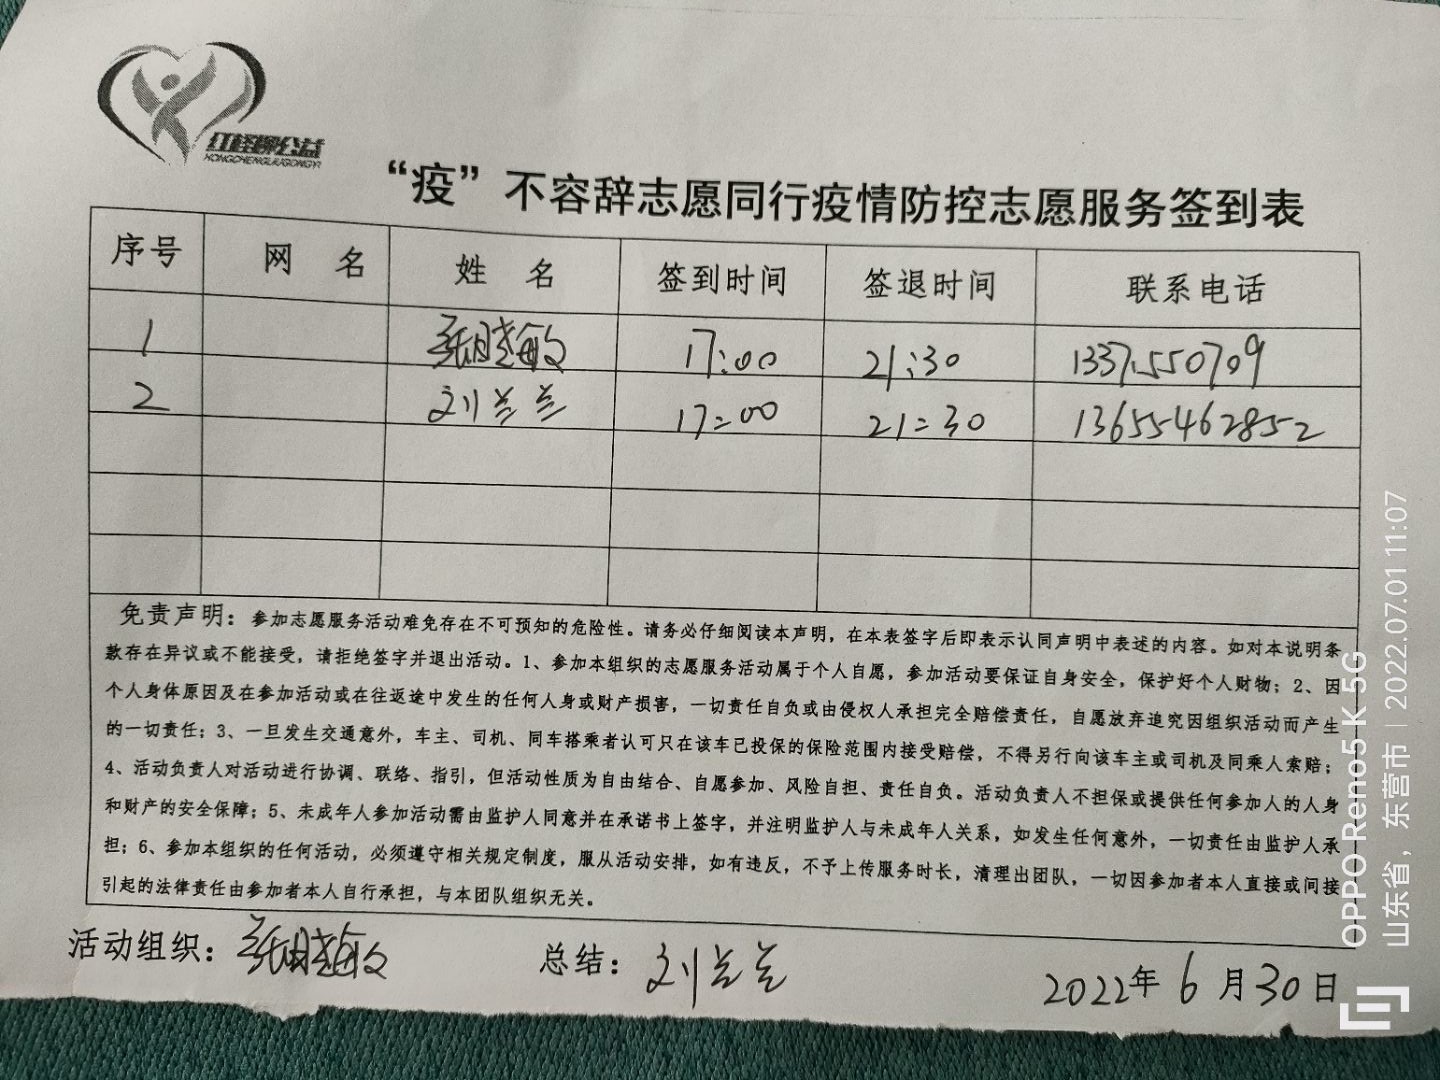 红柽柳公益
HONGCHENGLIUGONGYI
“疫”不容辞志愿同行疫情防控志愿服务签到表
序号 网 名 姓 名 签到时间 签退时间 联系电话
1 17:00 21:30 13371550709
2 刘兰兰 17:00 21:30 13655462852
免责声明：参加志愿服务活动难免存在不可预知的危险性。请务必仔细阅读本声明，在本表签字后即表示认同声明中表述的内容。如对本说明条
款存在异议或不能接受，请拒绝签字并退出活动。1、参加本组织的志愿服务活动属于个人自愿，参加活动要保证自身安全，保护好个人财物；2、因
个人身体原因及在参加活动或在往返途中发生的任何人身或财产损害，一切责任自负或由侵权人承担完全赔偿责任，自愿放弃追究因组织活动而产生
的一切责任；3、一旦发生交通意外，车主、司机、同车搭乘者认可只在该车已投保的保险范围内接受赔偿，不得另行向该车主或司机及同乘人索赔；
4、活动负责人对活动进行协调、联络、指引，但活动性质为自由结合、自愿参加、风险自担、责任自负。活动负责人不担保或提供任何参加人的人身
和财产的安全保障；5、未成年人参加活动需由监护人同意并在承诺书上签字，并注明监护人与未成年人关系，如发生任何意外，一切责任由监护人承
担；6、参加本组织的任何活动，必须遵守相关规定制度，服从活动安排，如有违反，不予上传服务时长，清理出团队，一切因参加者本人直接或间接
引起的法律责任由参加者本人自行承担，与本团队组织无关。
活动组织： 总结：刘兰兰 2022年6月30日
OPPO Reno5 K 5G
山东省，东营市 | 2022.07.01 11:07